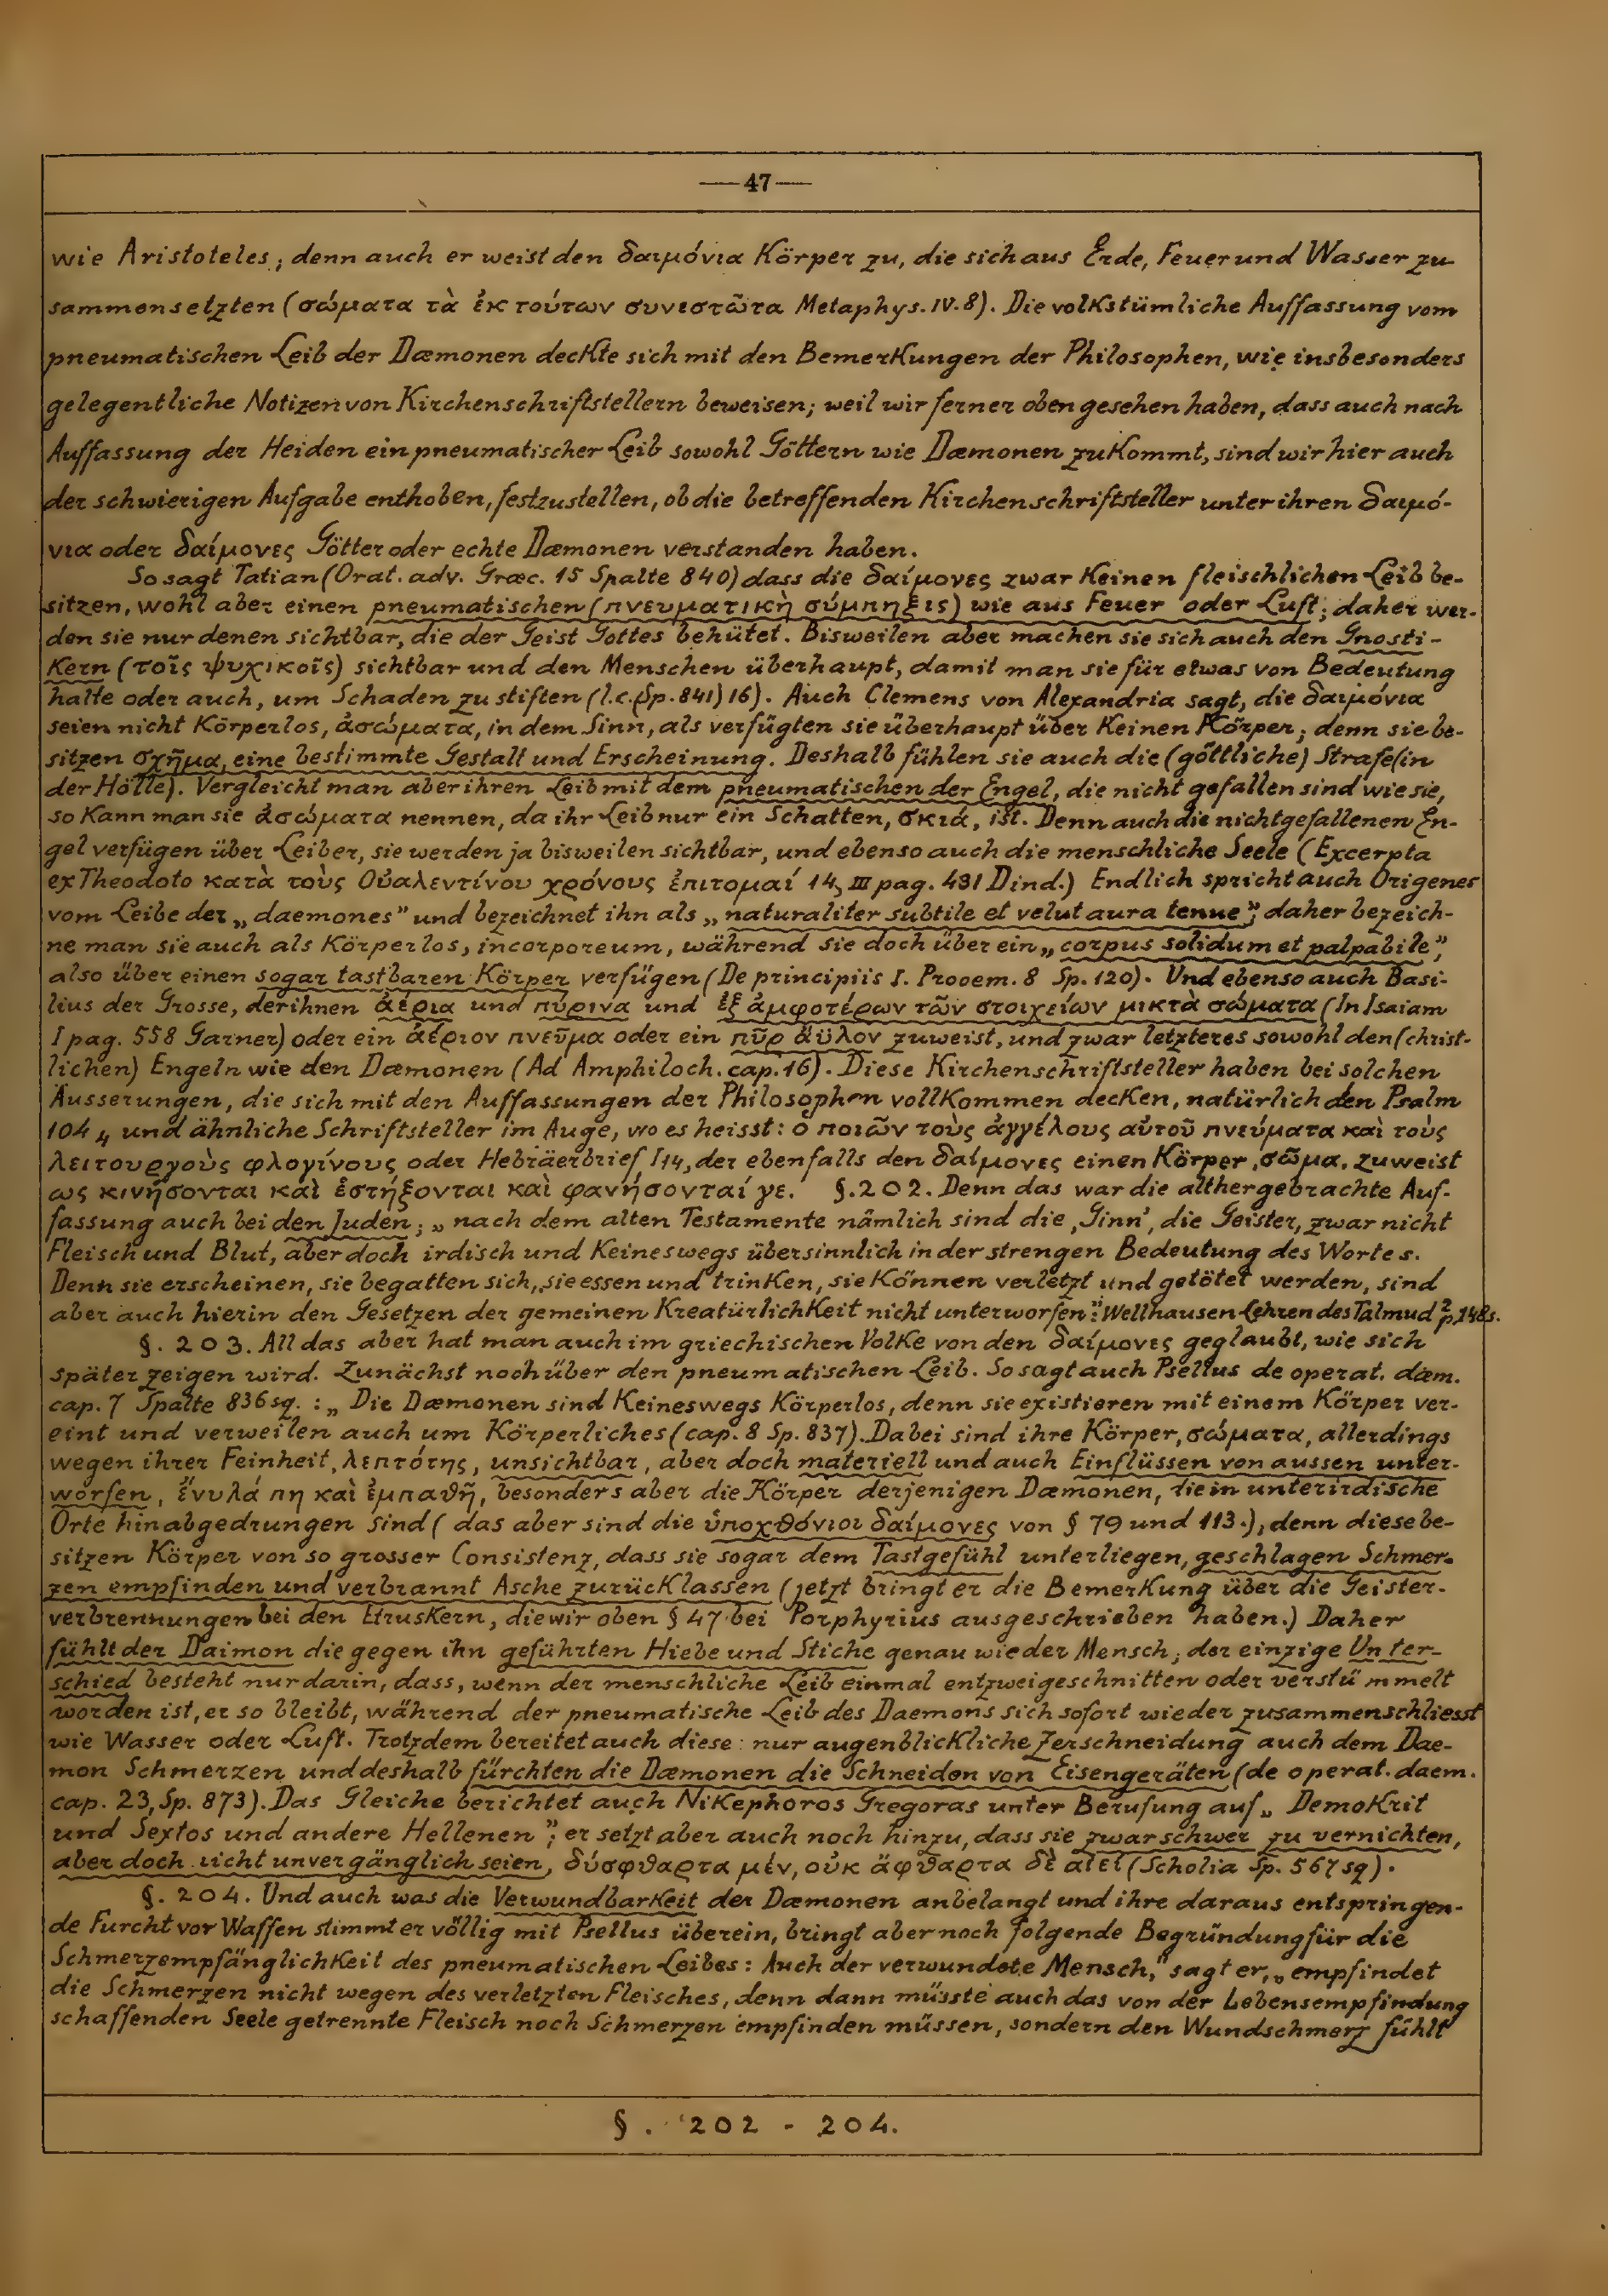 —47—
wie Aristoteles; denn auch er weist den δαιμόνια Körper zu, die sich aus Erde, Feuer und Wasser zu-
sammensetzten (σώματα τὰ ἐκ τούτων συνεστῶτα Metaphys. IV. 8). Die volkstümliche Auffassung vom
pneumatischen Leib der Dæmonen deckte sich mit den Bemerkungen der Philosophen, wie insbesonders
gelegentliche Notizen von Kirchenschriftstellern beweisen; weil wir ferner oben gesehen haben, dass auch nach
Auffassung der Heiden ein pneumatischer Leib sowohl Göttern wie Dæmonen zukommt, sind wir hier auch
der schwierigen Aufgabe enthoben, festzustellen, ob die betreffenden Kirchenschriftsteller unter ihren δαιμό-
νια oder δαίμονες Götter oder echte Dæmonen verstanden haben.
So sagt Tatian (Orat. adv. Græc. 15 Spalte 840) dass die δαίμονες zwar keinen fleischlichen Leib be-
sitzen, wohl aber einen pneumatischen (πνευματικὴ σύμπηξις) wie aus Feuer oder Luft; daher wer-
den sie nur denen sichtbar, die der Geist Gottes behütet. Bisweilen aber machen sie sich auch den Gnosti-
kern (τοῖς ψυχικοῖς) sichtbar und den Menschen überhaupt, damit man sie für etwas von Bedeutung
halte oder auch, um Schaden zu stiften (l.c. (Sp. 841) 16). Auch Clemens von Alexandria sagt, die δαιμόνια
seien nicht Körperlos, ἀσώματα, in dem Sinn, als verfügten sie überhaupt über keinen Körper; denn sie be-
sitzen σχῆμα, eine bestimmte Gestalt und Erscheinung. Deshalb fühlen sie auch die (göttliche) Strafe (in
der Hölle). Vergleicht man aber ihren Leib mit dem pneumatischen der Engel, die nicht gefallen sind wie sie,
so kann man sie ἀσώματα nennen, da ihr Leib nur ein Schatten, σκιά, ist. Denn auch die nichtgefallenen En-
gel verfügen über Leiber, sie werden ja bisweilen sichtbar, und ebenso auch die menschliche Seele (Excerpta
ex Theodoto κατὰ τοὺς Οὐαλεντίνου χρόνους ἐπιτομαί 14, III pag. 431 Dind.) Endlich spricht auch Origenes
vom Leibe der „daemones" und bezeichnet ihn als „naturaliter subtile et velut aura tenue"; daher bezeich-
ne man sie auch als Körperlos, incorporeum, während sie doch über ein „corpus solidum et palpabile",
also über einen sogar tastbaren Körper verfügen (De principiis I. Prooem. 8 Sp. 120). Und ebenso auch Basi-
lius der Grosse, der ihnen ἀέρια und πύρινα und ἐξ ἀμφοτέρων τῶν στοιχείων μικτὰ σώματα (In Isaiam
I pag. 558 Garner) oder ein ἀέριον πνεῦμα oder ein πῦρ ἄϋλον zuweist, und zwar letzteres sowohl den (christ-
lichen) Engeln wie den Dæmonen (Ad Amphiloch. cap. 16). Diese Kirchenschriftsteller haben bei solchen
Äusserungen, die sich mit den Auffassungen der Philosophen vollkommen decken, natürlich den Psalm
104 4 und ähnliche Schriftsteller im Auge, wo es heisst: ὁ ποιῶν τοὺς ἀγγέλους αὐτοῦ πνεύματα καὶ τοὺς
λειτουργοὺς φλογίνους oder Hebräerbrief I 14, der ebenfalls den δαίμονες einen Körper, σῶμα, zuweist
ως κινήσονται καὶ ἑστήξονται καὶ φανήσονταί γε. §. 202. Denn das war die althergebrachte Auf-
fassung auch bei den Juden; „nach dem alten Testamente nämlich sind die ‚Ginn', die Geister, zwar nicht
Fleisch und Blut, aber doch irdisch und keineswegs übersinnlich in der strengen Bedeutung des Wortes.
Denn sie erscheinen, sie begatten sich, sie essen und trinken, sie können verletzt und getötet werden, sind
aber auch hierin den Gesetzen der gemeinen Kreatürlichkeit nicht unterworfen": Wellhausen Lehren des Talmud ² p. 148s.
§. 203. All das aber hat man auch im griechischen Volke von den δαίμονες geglaubt, wie sich
später zeigen wird. Zunächst noch über den pneumatischen Leib. So sagt auch Psellus de operat. dæm.
cap. 7 Spalte 836 sq. : „Die Dæmonen sind keineswegs Körperlos, denn sie existieren mit einem Körper ver-
eint und verweilen auch um Körperliches (cap. 8 Sp. 837). Dabei sind ihre Körper, σώματα, allerdings
wegen ihrer Feinheit, λεπτότης, unsichtbar, aber doch materiell und auch Einflüssen von aussen unter-
worfen, ἔνυλά πη καὶ ἐμπαθῆ, besonders aber die Körper derjenigen Dæmonen, die in unterirdische
Orte hinabgedrungen sind (das aber sind die ὑποχθόνιοι δαίμονες von § 79 und 113.), denn diese be-
sitzen Körper von so grosser Consistenz, dass sie sogar dem Tastgefühl unterliegen, geschlagen Schmer-
zen empfinden und verbrannt Asche zurücklassen (jetzt bringt er die Bemerkung über die Geister-
verbrennungen bei den Etruskern, die wir oben § 47 bei Porphyrius ausgeschrieben haben.) Daher
fühlt der Daimon die gegen ihn geführten Hiebe und Stiche genau wie der Mensch; der einzige Unter-
schied besteht nur darin, dass, wenn der menschliche Leib einmal entzweigeschnitten oder verstümmelt
worden ist, er so bleibt, während der pneumatische Leib des Daemons sich sofort wieder zusammenschliesst
wie Wasser oder Luft. Trotzdem bereitet auch diese nur augenblickliche Zerschneidung auch dem Dae-
mon Schmerzen und deshalb fürchten die Dæmonen die Schneiden von Eisengeräten (de operat. daem.
cap. 23, Sp. 873). Das Gleiche berichtet auch Nikephoros Gregoras unter Berufung auf „Demokrit
und Sextos und andere Hellenen"; er setzt aber auch noch hinzu, dass sie zwar schwer zu vernichten,
aber doch nicht unvergänglich seien, δύσφθαρτα μέν, οὐκ ἄφθαρτα δὲ ἀεί (Scholia Sp. 567 sq).
§. 204. Und auch was die Verwundbarkeit der Dæmonen anbelangt und ihre daraus entspringen-
de Furcht vor Waffen stimmt er völlig mit Psellus überein, bringt aber noch folgende Begründung für die
Schmerzempfänglichkeit des pneumatischen Leibes: Auch der verwundete Mensch," sagt er, „empfindet
die Schmerzen nicht wegen des verletzten Fleisches, denn dann müsste auch das von der Lebensempfindung
schaffenden Seele getrennte Fleisch noch Schmerzen empfinden müssen, sondern den Wundschmerz fühlt
§. 202 - 204.